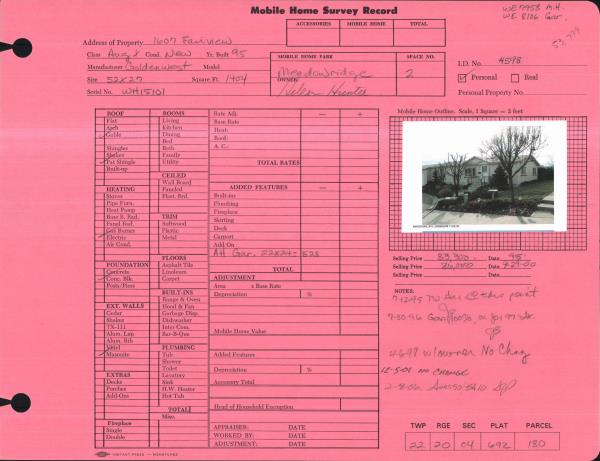 Mobile Home Survey Record
WE 7958 M.H.
WE 8106 Gar.
53,779
ACCESSORIES MOBILE HOME TOTAL
Address of Property 1607 Fairview
Class Avg X Cond. New Yr. Built 95
Manufacturer Goldenwest Model
Size 52X27 Square Ft. 1404
Serial No. WH15101
MOBILE HOME PARK SPACE NO.
Meadowridge 2
OWNER:
Helen Hunter
I.D. No. 4598
Personal Real
Personal Property No.
Mobile Home Outline. Scale, 1 Square = 2 feet
ROOF
Flat
Arch
Gable
Shingles
Shakes
Fat Shingle
Built-up
HEATING
Stoves
Pipe Furn.
Heat Pump
Base B. Rad.
Panel Rad.
Gas Burner
Electric
Air Cond.
FOUNDATION
Concrete
Conc. Blk.
Posts/Piers
EXT. WALLS
Cedar
Shakes
TX-111
Alum. Lap
Alum. Rib
Vinyl
Masonite
EXTRAS
Decks
Porches
Add-Ons
Fireplace
Single
Double
ROOMS
Living
Kitchen
Dining
Bed
Bath
Family
Utility
CEILED
Wall Board
Paneled
Plast. Brd.
TRIM
Softwood
Plastic
Metal
FLOORS
Asphalt Tile
Linoleum
Carpet
BUILT-INS
Range & Oven
Hood & Fan
Garbage Disp.
Dishwasher
Inter Com.
Bar-B-Que
PLUMBING
Tub
Shower
Toilet
Lavatory
Sink
H.W. Heater
Hot Tub
TOTAL
Misc.
Rate Adj: — +
Base Rate
Heat:
Roof:
A. C.:
TOTAL RATES
ADDED FEATURES — +
Built-ins
Plumbing
Fireplace
Skirting
Deck
Carport
Add On
Att Gar. 22X24= 528
TOTAL
ADJUSTMENT
Area x Base Rate
Depreciation %
Mobile Home Value
Added Features
Depreciation %
Accessory Total
Head of Household Exemption
APPRAISER: DATE
WORKED BY: DATE
ADJUSTMENT: DATE
Selling Price 83,300 Date 95
Selling Price Date 7-27-00
Selling Price Date
NOTES:
7-12-95 No at this point
7-30-96 Gar 100% for 97
4-6-98 w/owner No Chng
12-5-01 NO CHANGE
TWP RGE SEC PLAT PARCEL
22 20 04 692 180